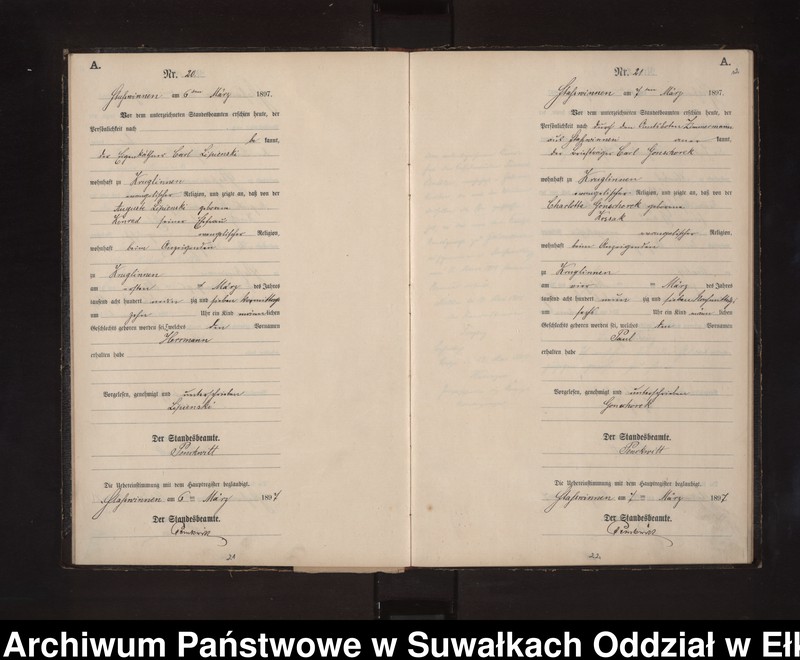 A.
Nr. 20
Staßwinnen am 6ten März 1897.
Vor dem unterzeichneten Standesbeamten erschien heute, der
Persönlichkeit nach
be kannt,
der Eigenkäthner Carl Lipienski
wohnhaft zu Kruglinnen
evangelischer Religion, und zeigte an, daß von der
Auguste Lipienski geborne
seiner Ehefrau
evangelischer Religion,
wohnhaft beim Anzeigenden
zu Kruglinnen
am ersten März des Jahres
tausend acht hundert neun zig und sieben Vormittags
um zehn Uhr ein Kind männlichen
Geschlechts geboren worden sei, welches den Vornamen
Herrmann
erhalten habe
Vorgelesen, genehmigt und unterschrieben
Lipienski
Der Standesbeamte.
Die Uebereinstimmung mit dem Hauptregister beglaubigt.
Staßwinnen am 6ten März 1897
Der Standesbeamte.
21
A.
Nr. 21
Staßwinnen am 7ten März 1897.
Vor dem unterzeichneten Standesbeamten erschien heute, der
Persönlichkeit nach durch den Amtsboten Zimmermann
aus Staßwinnen aner kannt,
der Briefträger Carl Gonschorek
wohnhaft zu Kruglinnen
evangelischer Religion, und zeigte an, daß von der
Charlotte Gonschorek geborne
evangelischer Religion,
wohnhaft beim Anzeigenden
zu Kruglinnen
am vier ten März des Jahres
tausend acht hundert neun zig und sieben Nachmittags
um sechs Uhr ein Kind männ lichen
Geschlechts geboren worden sei, welches den Vornamen
Paul
erhalten habe
Vorgelesen, genehmigt und unterschrieben
Gonschorek
Der Standesbeamte.
Die Uebereinstimmung mit dem Hauptregister beglaubigt.
Staßwinnen am 7ten März 1897
Der Standesbeamte.
22.
Archiwum Państwowe w Suwałkach Oddział w Ełk